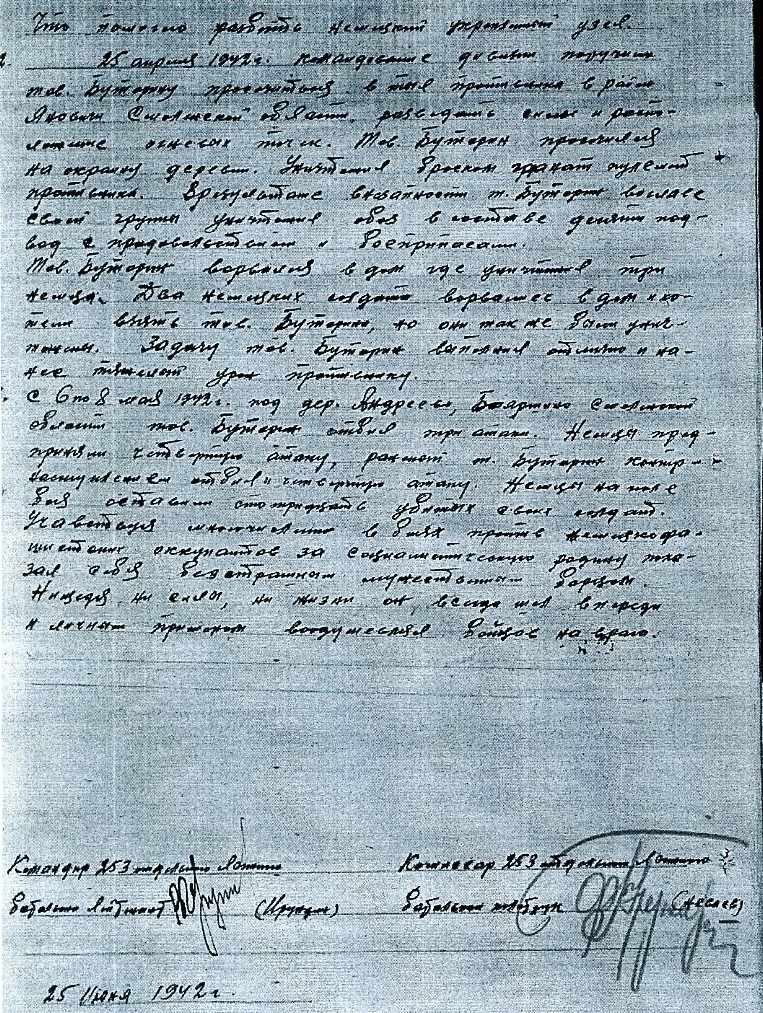 Что помогло разбить немецкий укрепленный узел.
25 апреля 1942 г. командование дивизии поручило
тов. Буторину просочиться в тыл противника в район
Смоленской области, разведать силы и распо-
ложение огневых точек. Тов. Буторин просочился
на окраину деревни. Уничтожил броском гранат пулемет
противника. В результате внезапности т. Буторин во главе
своей группы уничтожил обоз в составе десяти под-
вод с продовольствием и боеприпасами.
Тов. Буторин ворвался в дом где уничтожил три
немца. Два немецких солдата ворвались в дом и хо-
тели взять тов. Буторина, но они также были унич-
тожены. Задачу тов. Буторин выполнил отлично и на-
нес тяжелый урон противнику.
С 6 по 8 мая 1942 г. под дер. Смоленской
области тов. Буторин отбил три атаки. Немцы пред-
приняли четвертую атаку, т. Буторин контр-
отбил и четвертую атаку. Немцы на поле
боя оставили сто тридцать убитых своих солдат.
Участвуя в боях против немецкофа-
шистских оккупантов за социалистическую родину пока-
зал себя бесстрашным мужественным борцом.
Не щадя ни силы, ни жизни он, всегда шел впереди
и личным примером воодушевлял бойцов на врага.
Командир 253 отдельного Комиссар 253 отдельного
батальона лейтенант батальона политрук
25 июня 1942 г.